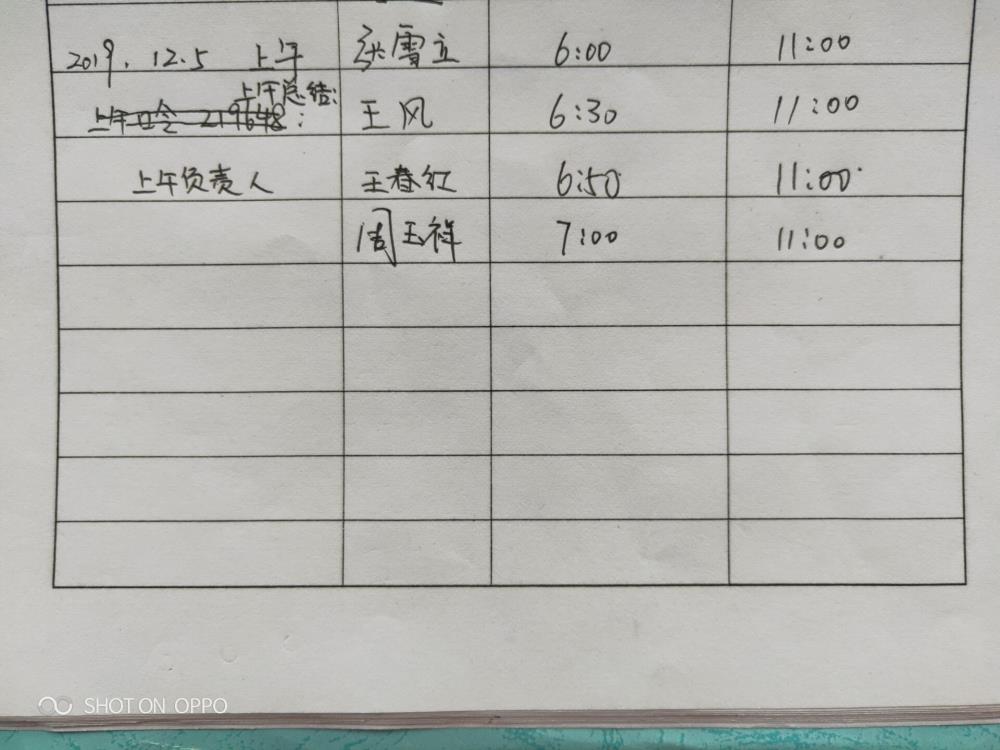 2019.12.5 上午 张雪立 6:00 11:00
上午总结:
上午口令 219648: 王风 6:30 11:00
上午负责人 王春红 6:50 11:00
周玉祥 7:00 11:00
SHOT ON OPPO